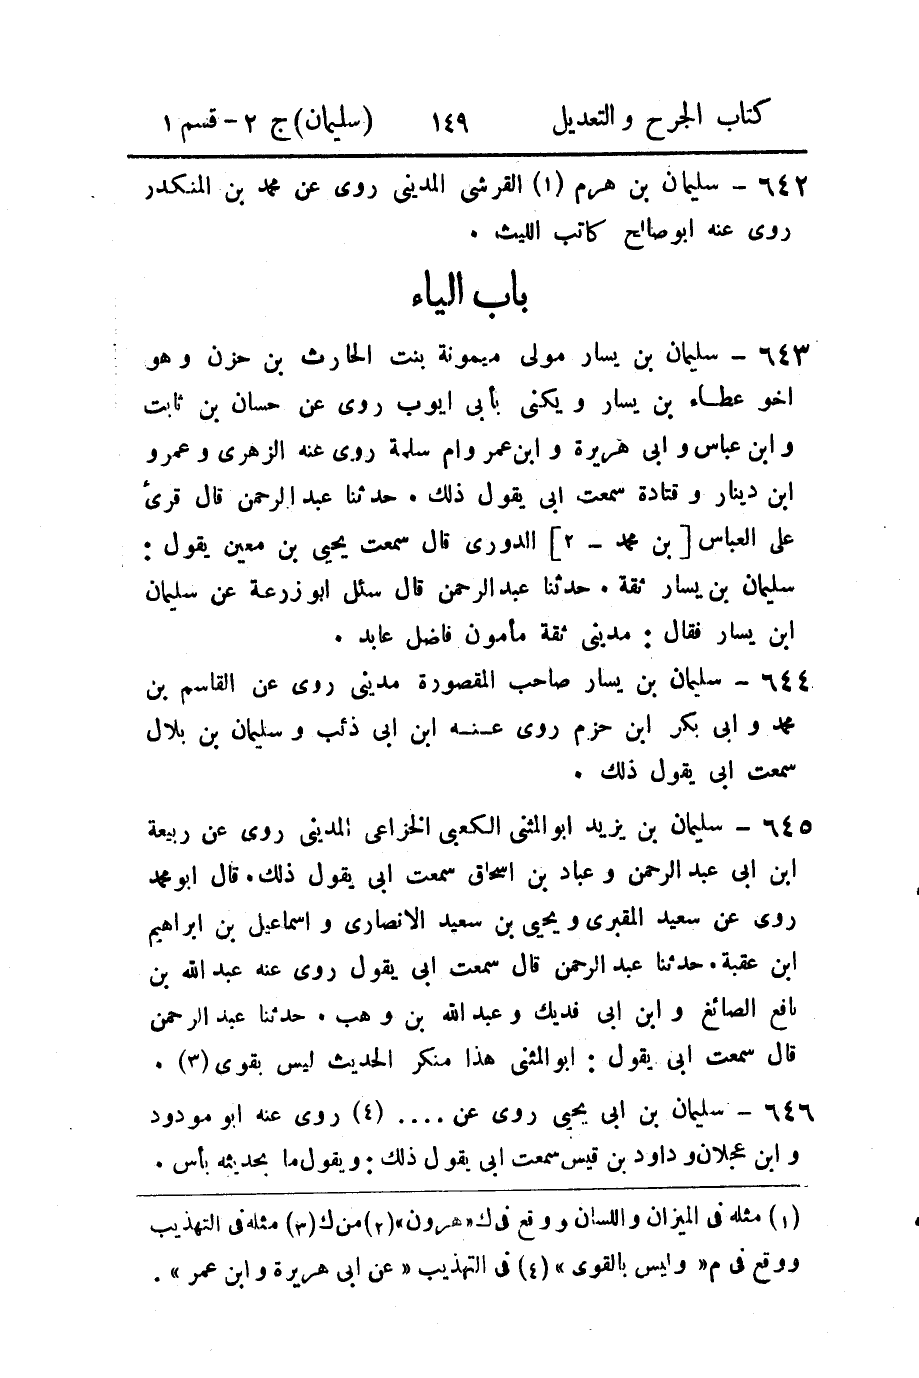 كتاب الجرح والتعديل ١٤٩ (سليمان) ج ٢ - قسم ١
٦٤٢ - سليمان بن هرم (١) القرشى المدينى روى عن محمد بن المنكدر
روى عنه ابو صالح كاتب الليث .
باب الياء
٦٤٣ - سليمان بن يسار مولى ميمونة بنت الحارث بن حزن و هو
اخو عطاء بن يسار و يكنى بأبى ايوب روى عن حسان بن ثابت
و ابن عباس و ابى هريرة و ابن عمر وام سلمة روى عنه الزهرى و عمرو
ابن دينار و قتادة سمعت ابى يقول ذلك . حدثنا عبد الرحمن قال قرئ
على العباس [بن محمد - ٢] الدورى قال سمعت يحيى بن معين يقول :
سليمان بن يسار ثقة . حدثنا عبد الرحمن قال سئل ابو زرعة عن سليمان
ابن يسار فقال : مدينى ثقة مأمون فاضل عابد .
٦٤٤ - سليمان بن يسار صاحب المقصورة مدينى روى عن القاسم بن
محمد و ابى بكر ابن حزم روى عنه ابن ابى ذئب و سليمان بن بلال
سمعت ابى يقول ذلك .
٦٤٥ - سليمان بن يزيد ابو المثنى الكعبى الخزاعى المدينى روى عن ربيعة
ابن ابى عبد الرحمن و عباد بن اسحاق سمعت ابى يقول ذلك . قال ابو محمد
روى عن سعيد المقبرى و يحيى بن سعيد الانصارى و اسماعيل بن ابراهيم
ابن عقبة . حدثنا عبد الرحمن قال سمعت ابى يقول روى عنه عبد الله بن
نافع الصائغ و ابن ابى فديك و عبد الله بن وهب . حدثنا عبد الرحمن
قال سمعت ابى يقول : ابو المثنى هذا منكر الحديث ليس بقوى (٣) .
٦٤٦ - سليمان بن ابى يحيى روى عن .... (٤) روى عنه ابو مودود
و ابن عجلان و داود بن قيس سمعت ابى يقول ذلك : و يقول ما بحديثه بأس .
(١) مثله فى الميزان و اللسان و وقع فى ك «هرون» (٢) من ك (٣) مثله فى التهذيب
و وقع فى م « وليس بالقوى » (٤) فى التهذيب « عن ابى هريرة و ابن عمر » .